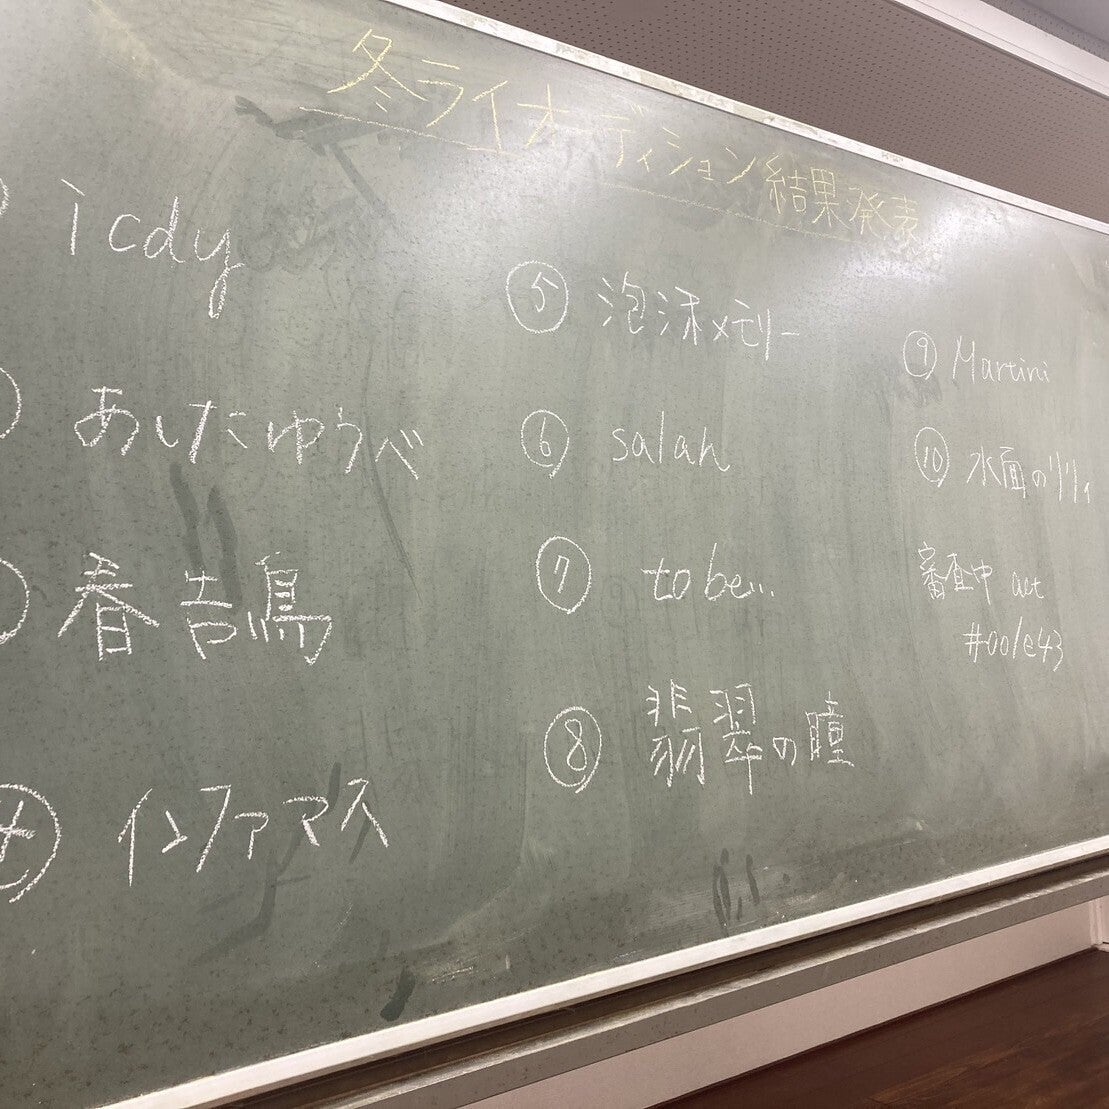 冬ライオーディション結果発表
icdy
あしたゆうべ
春吉鳥
④ インファマス
⑤ 泡沫メモリー
⑥ salah
⑦ to be..
⑧ 翡翠の瞳
⑨ Martini
⑩ 水面のリリィ
審査中 act
#001e43